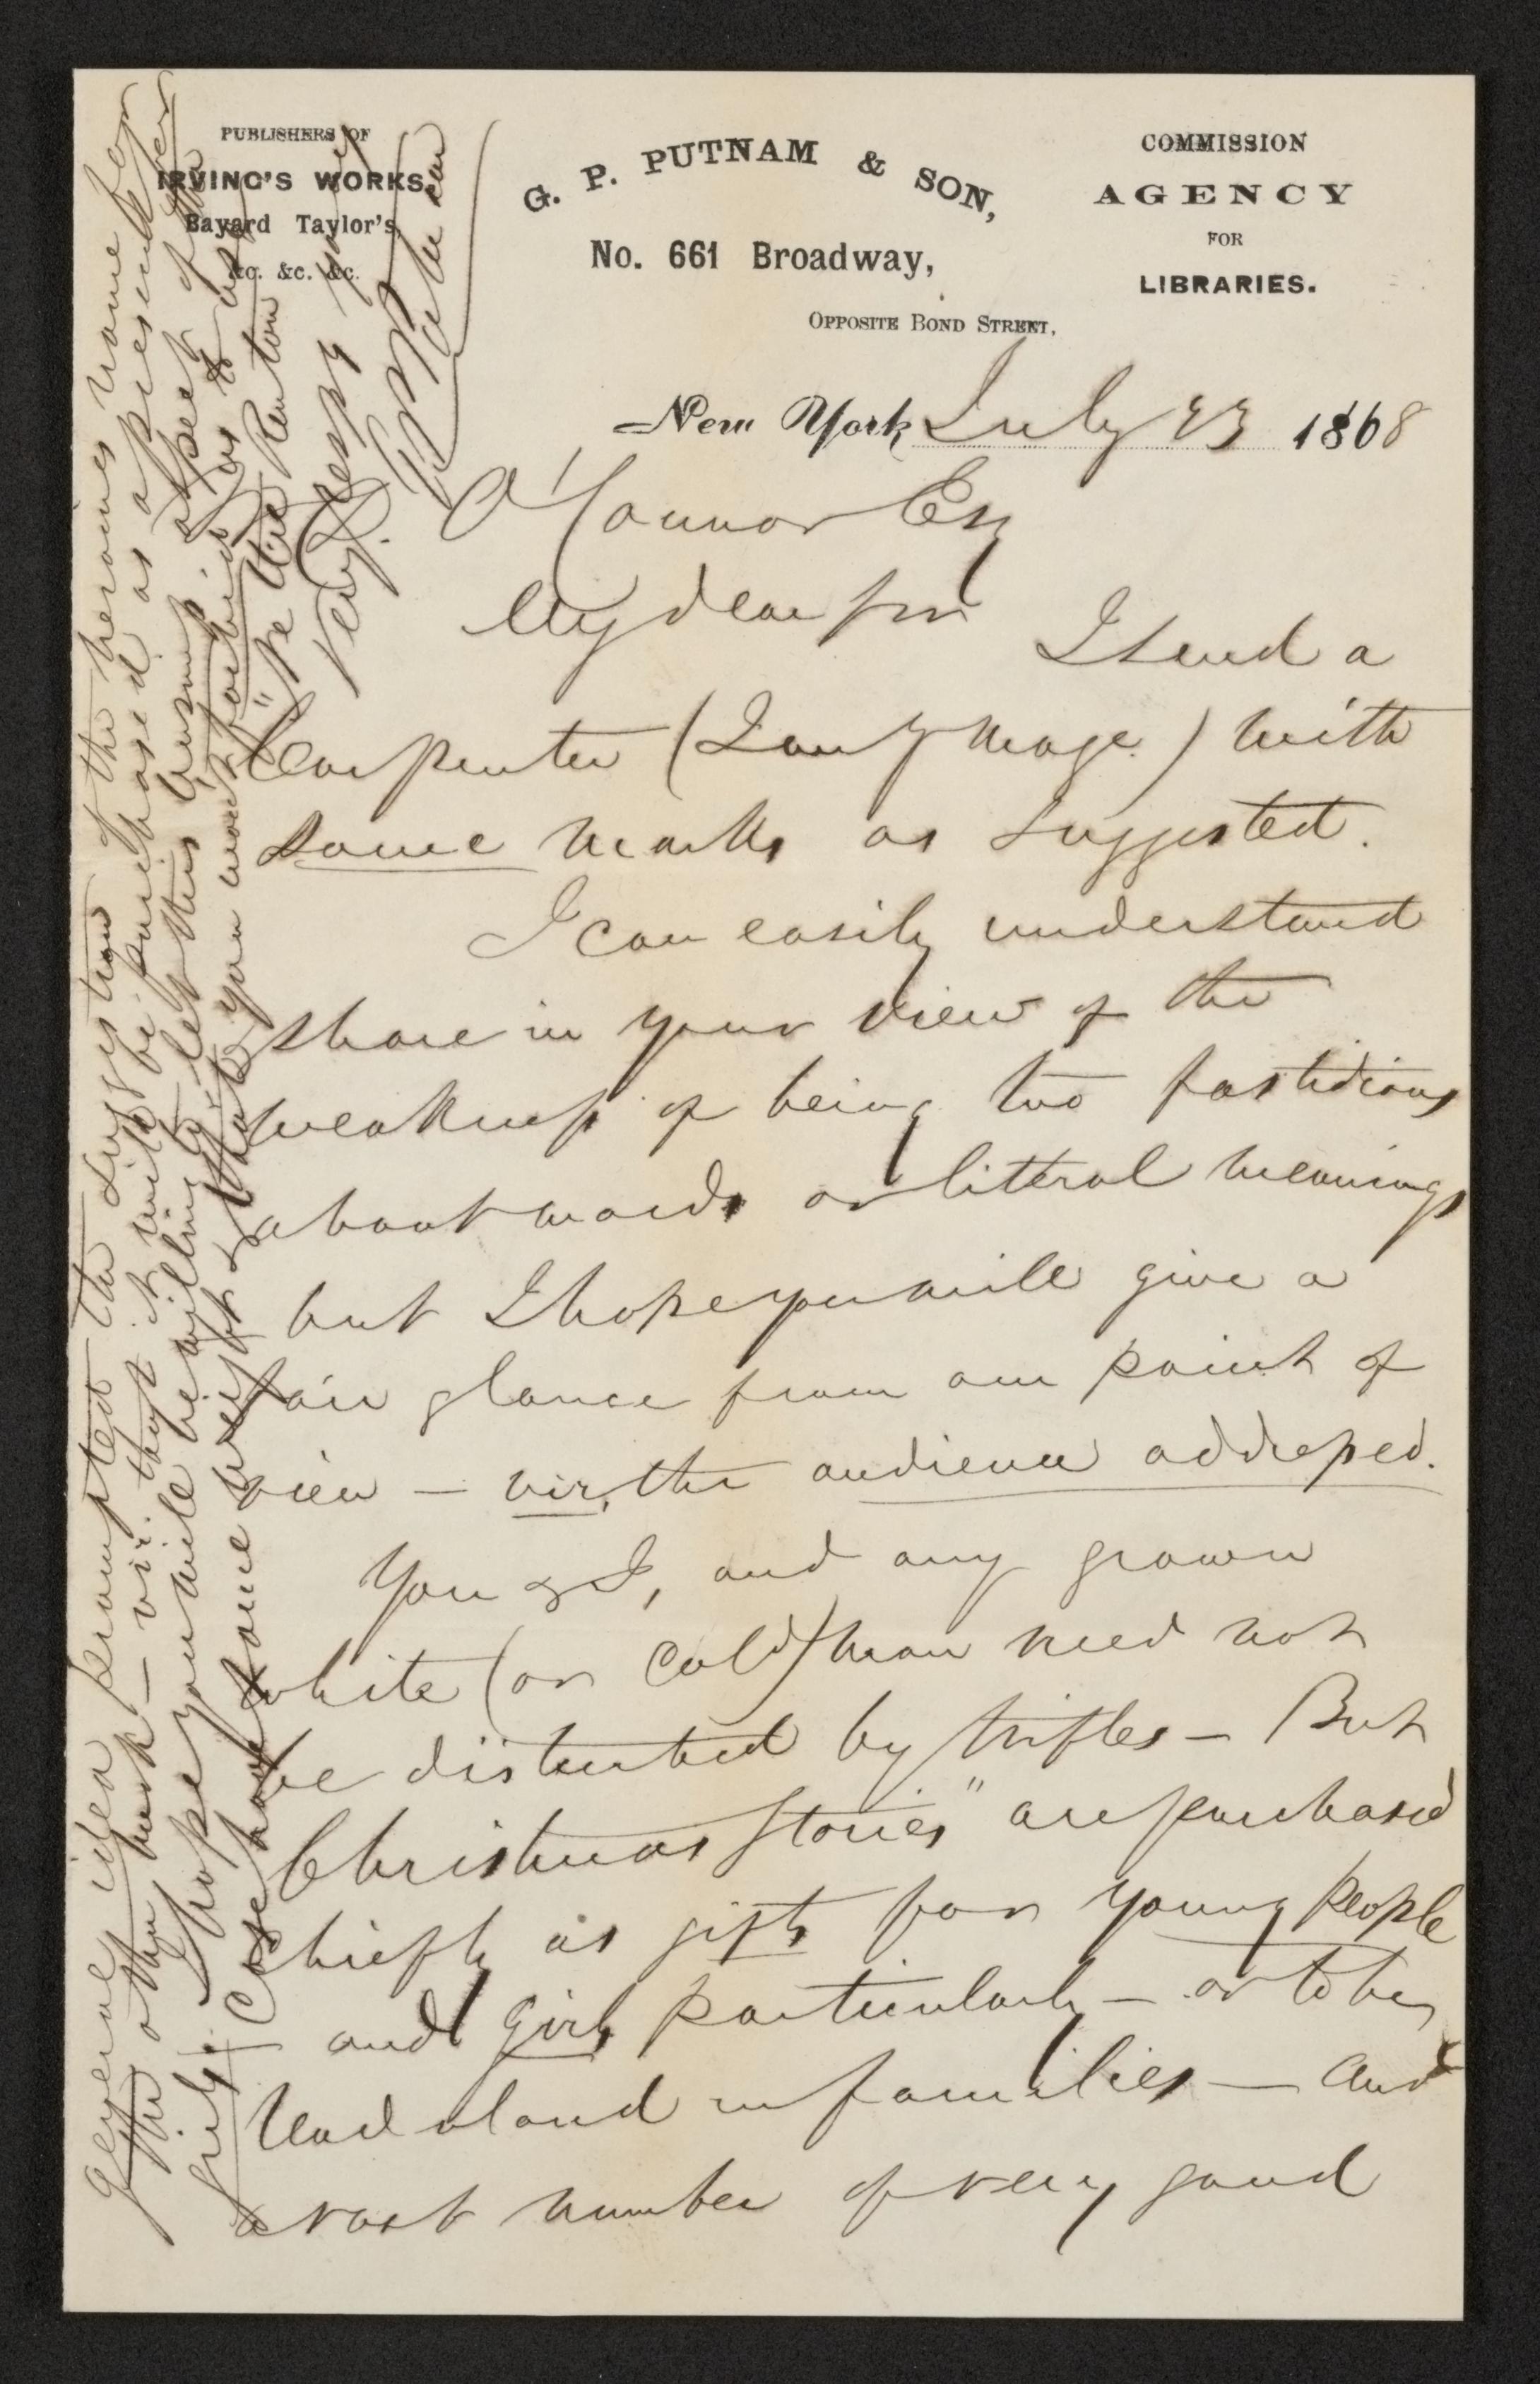 PUBLISHERS OF
IRVING'S WORKS,
Bayard Taylor's,
&c. &c. &c.
G. P. PUTNAM & SON,
No. 661 Broadway,
OPPOSITE BOND STREET,
COMMISSION
AGENCY
FOR
LIBRARIES.
New York July 23 1868
O'Connor Esq
My dear sir
I send a
Carpenter (Jany Mage.) with
some marks as suggested.
I can easily understand
share in your view of the
weakness of being too fastidious
about words or litteral meanings
but I hope you will give a
fair glance from our point of
view — viz, the audience addressed.
You & I, and any grown
white (or cold) man need not
be disturbed by trifles — But
Christmas Stories" are purchased
chiefly as gifts for young people
and girls particularly — or to be
read aloud in families — and
a vast number of very good
general idea prompted the suggestion of the heroines name for
the other book — viz. that it will be purchased as a present
I hope you will be willing to let this aspect of the
& that you wont forbid us to use
"The Renton
Very Respy yours
G P Putnam